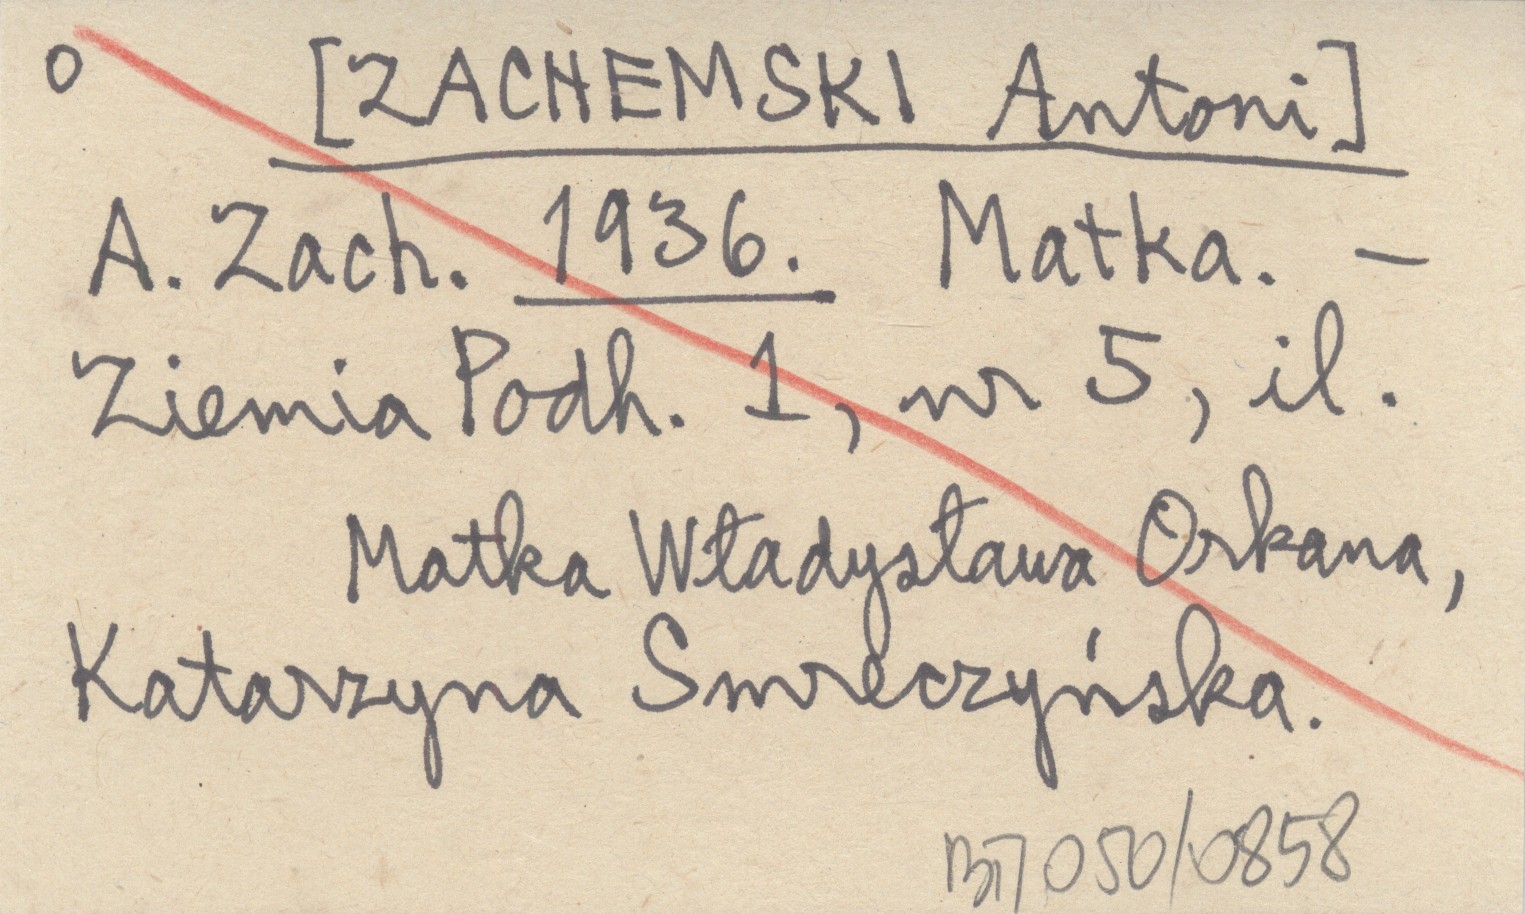 o [ZACHEMSKI Antoni]
A. Zach. 1936. Matka. –
Ziemia Podh. 1, nr 5, il.
Matka Władysława Orkana,
Katarzyna Smreczyńska.
BT 050/0858